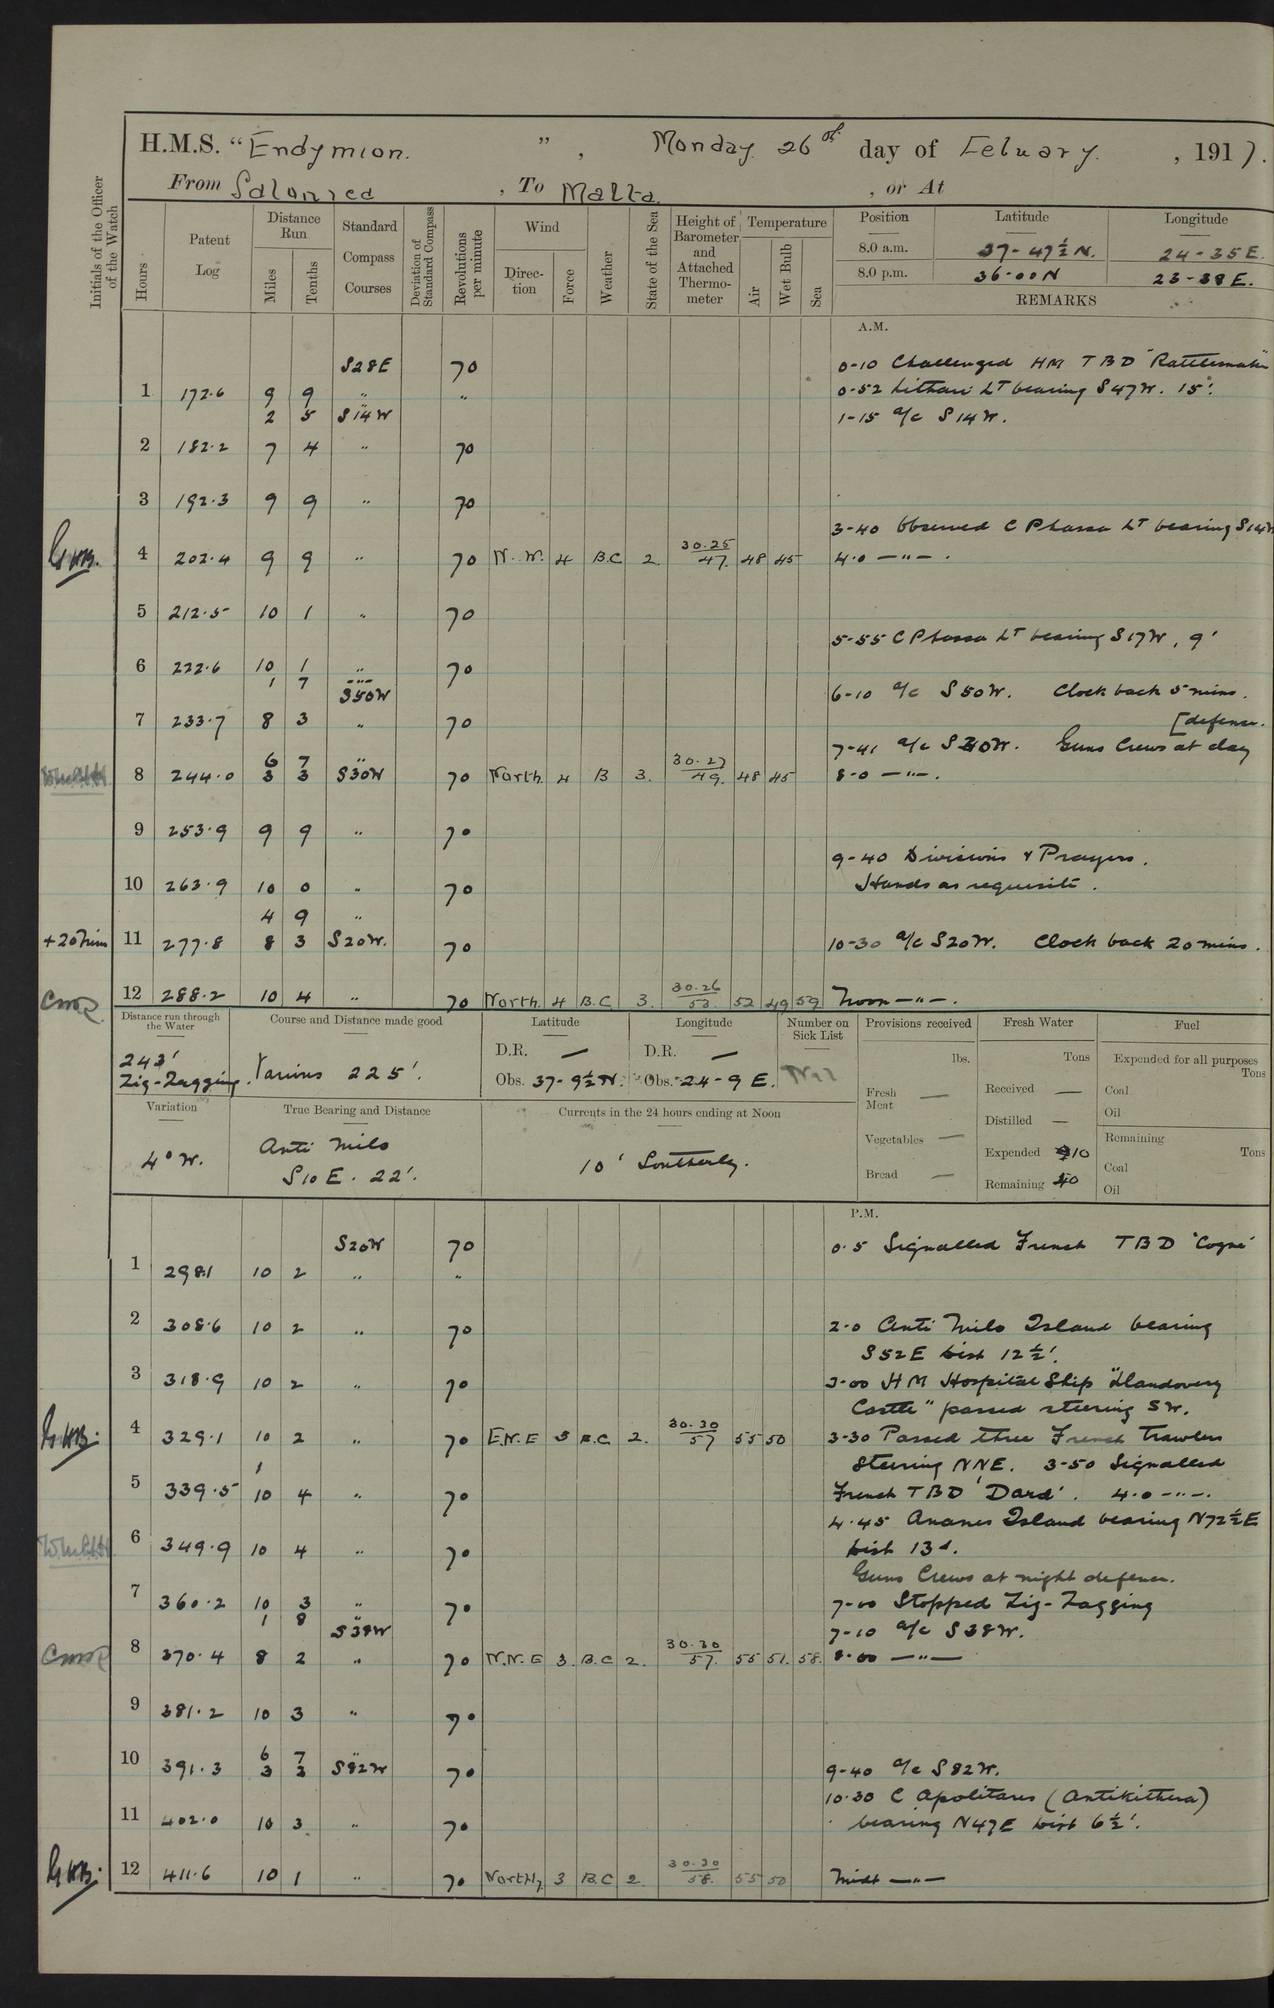 H.M.S. "Endymion.", Monday 26th day of Febuary, 1917.
From Salonica, To Malta, or At
Initials of the Officer of the Watch
Hours
Patent Log
Distance Run
Miles
Tenths
Standard Compass Courses
Deviation of Standard Compass
Revolutions per minute
Wind
Direction
Force
Weather
State of the Sea
Height of Barometer and Attached Thermometer
Temperature
Air
Wet Bulb
Sea
Position Latitude Longitude
8.0 a.m. 37-47½ N. 24-35 E.
8.0 p.m. 36-00 N 23-38 E.
REMARKS
A.M.
S28E 70 0-10 Challenged HM TBD "Rattlesnake"
1 172.6 9 9 " " 0-52 Lithari Lt bearing S47W. 15'.
2 5 S14W 1-15 a/c S14W.
2 182.2 7 4 " 70
3 192.3 9 9 " 70
3-40 Observed C Phassa Lt bearing S14W
4 202.4 9 9 " 70 N.W. 4 B.C 2 30.25/47. 48 45 4.0 —"— .
5 212.5 10 1 " 70
5-55 C Phassa Lt bearing S17W, 9'
6 222.6 10 1 " 70
1 7 S50W 6-10 a/c S50W. Clock back 5 mins.
7 233.7 8 3 " 70 [defence.
6 7 " 7-41 a/c S30W. Guns Crews at day
8 244.0 3 3 S30W 70 North. 4 B 3. 30.27/49. 48 45 8-0 —"— .
9 253.9 9 9 " 70
9-40 Divisions & Prayers.
10 263.9 10 0 " 70 Hands as requisite.
4 9 "
+20 min 11 277.8 8 3 S20W. 70 10-30 a/c S20W. Clock back 20 mins.
12 288.2 10 4 " 70 North. 4 B.C. 3. 30.26/53. 52 49 59 Noon —"— .
Distance run through the Water
243'
Zig-Zagging.
Course and Distance made good
Various 225'.
Latitude
D.R. —
Obs. 37-9½ N.
Longitude
D.R. —
Obs. 24-9 E.
Number on Sick List
Nil
Provisions received
lbs.
Fresh Meat —
Vegetables —
Bread —
Fresh Water
Tons
Received —
Distilled —
Expended 10
Remaining 40
Fuel
Expended for all purposes
Tons
Coal
Oil
Remaining
Tons
Coal
Oil
Variation
4° W.
True Bearing and Distance
Anti Milo
S10E. 22'.
Currents in the 24 hours ending at Noon
10' Southerly.
P.M.
S20W 70 0.5 Signalled French TBD 'Cogne'
1 298.1 10 2 " "
2 308.6 10 2 " 70 2-0 Anti Milo Island bearing
S52E dist 12½'.
3 318.9 10 2 " 70 3-00 HM Hospital Ship "Llandovery
Castle" passed steering SW.
4 329.1 10 2 " 70 E.N.E 3 B.C. 2. 30.30/57 55 50 3-30 Passed three French Trawlers
1 steering NNE. 3-50 Signalled
5 339.5 10 4 " 70 French TBD 'Dard'. 4.0 —"— .
4.45 Ananes Island bearing N72½E
6 349.9 10 4 " 70 dist 13'.
Guns Crews at night defence.
7 360.2 10 3 " 70 7-00 Stopped Zig-Zagging
1 8 S38W 7-10 a/c S38W.
8 370.4 8 2 " 70 N.N.E 3. B.C. 2. 30.30/57. 55 51. 58. 8.00 —"—
9 381.2 10 3 " 70
6 7 "
10 391.3 3 3 S82W 70 9-40 a/c S82W.
10.30 C Apolitares (Antikithera)
11 402.0 10 3 " 70 bearing N47E dist 6½'.
12 411.6 10 1 " 70 Northly 3 B.C 2 30.30/58. 55 50 Midt —"—